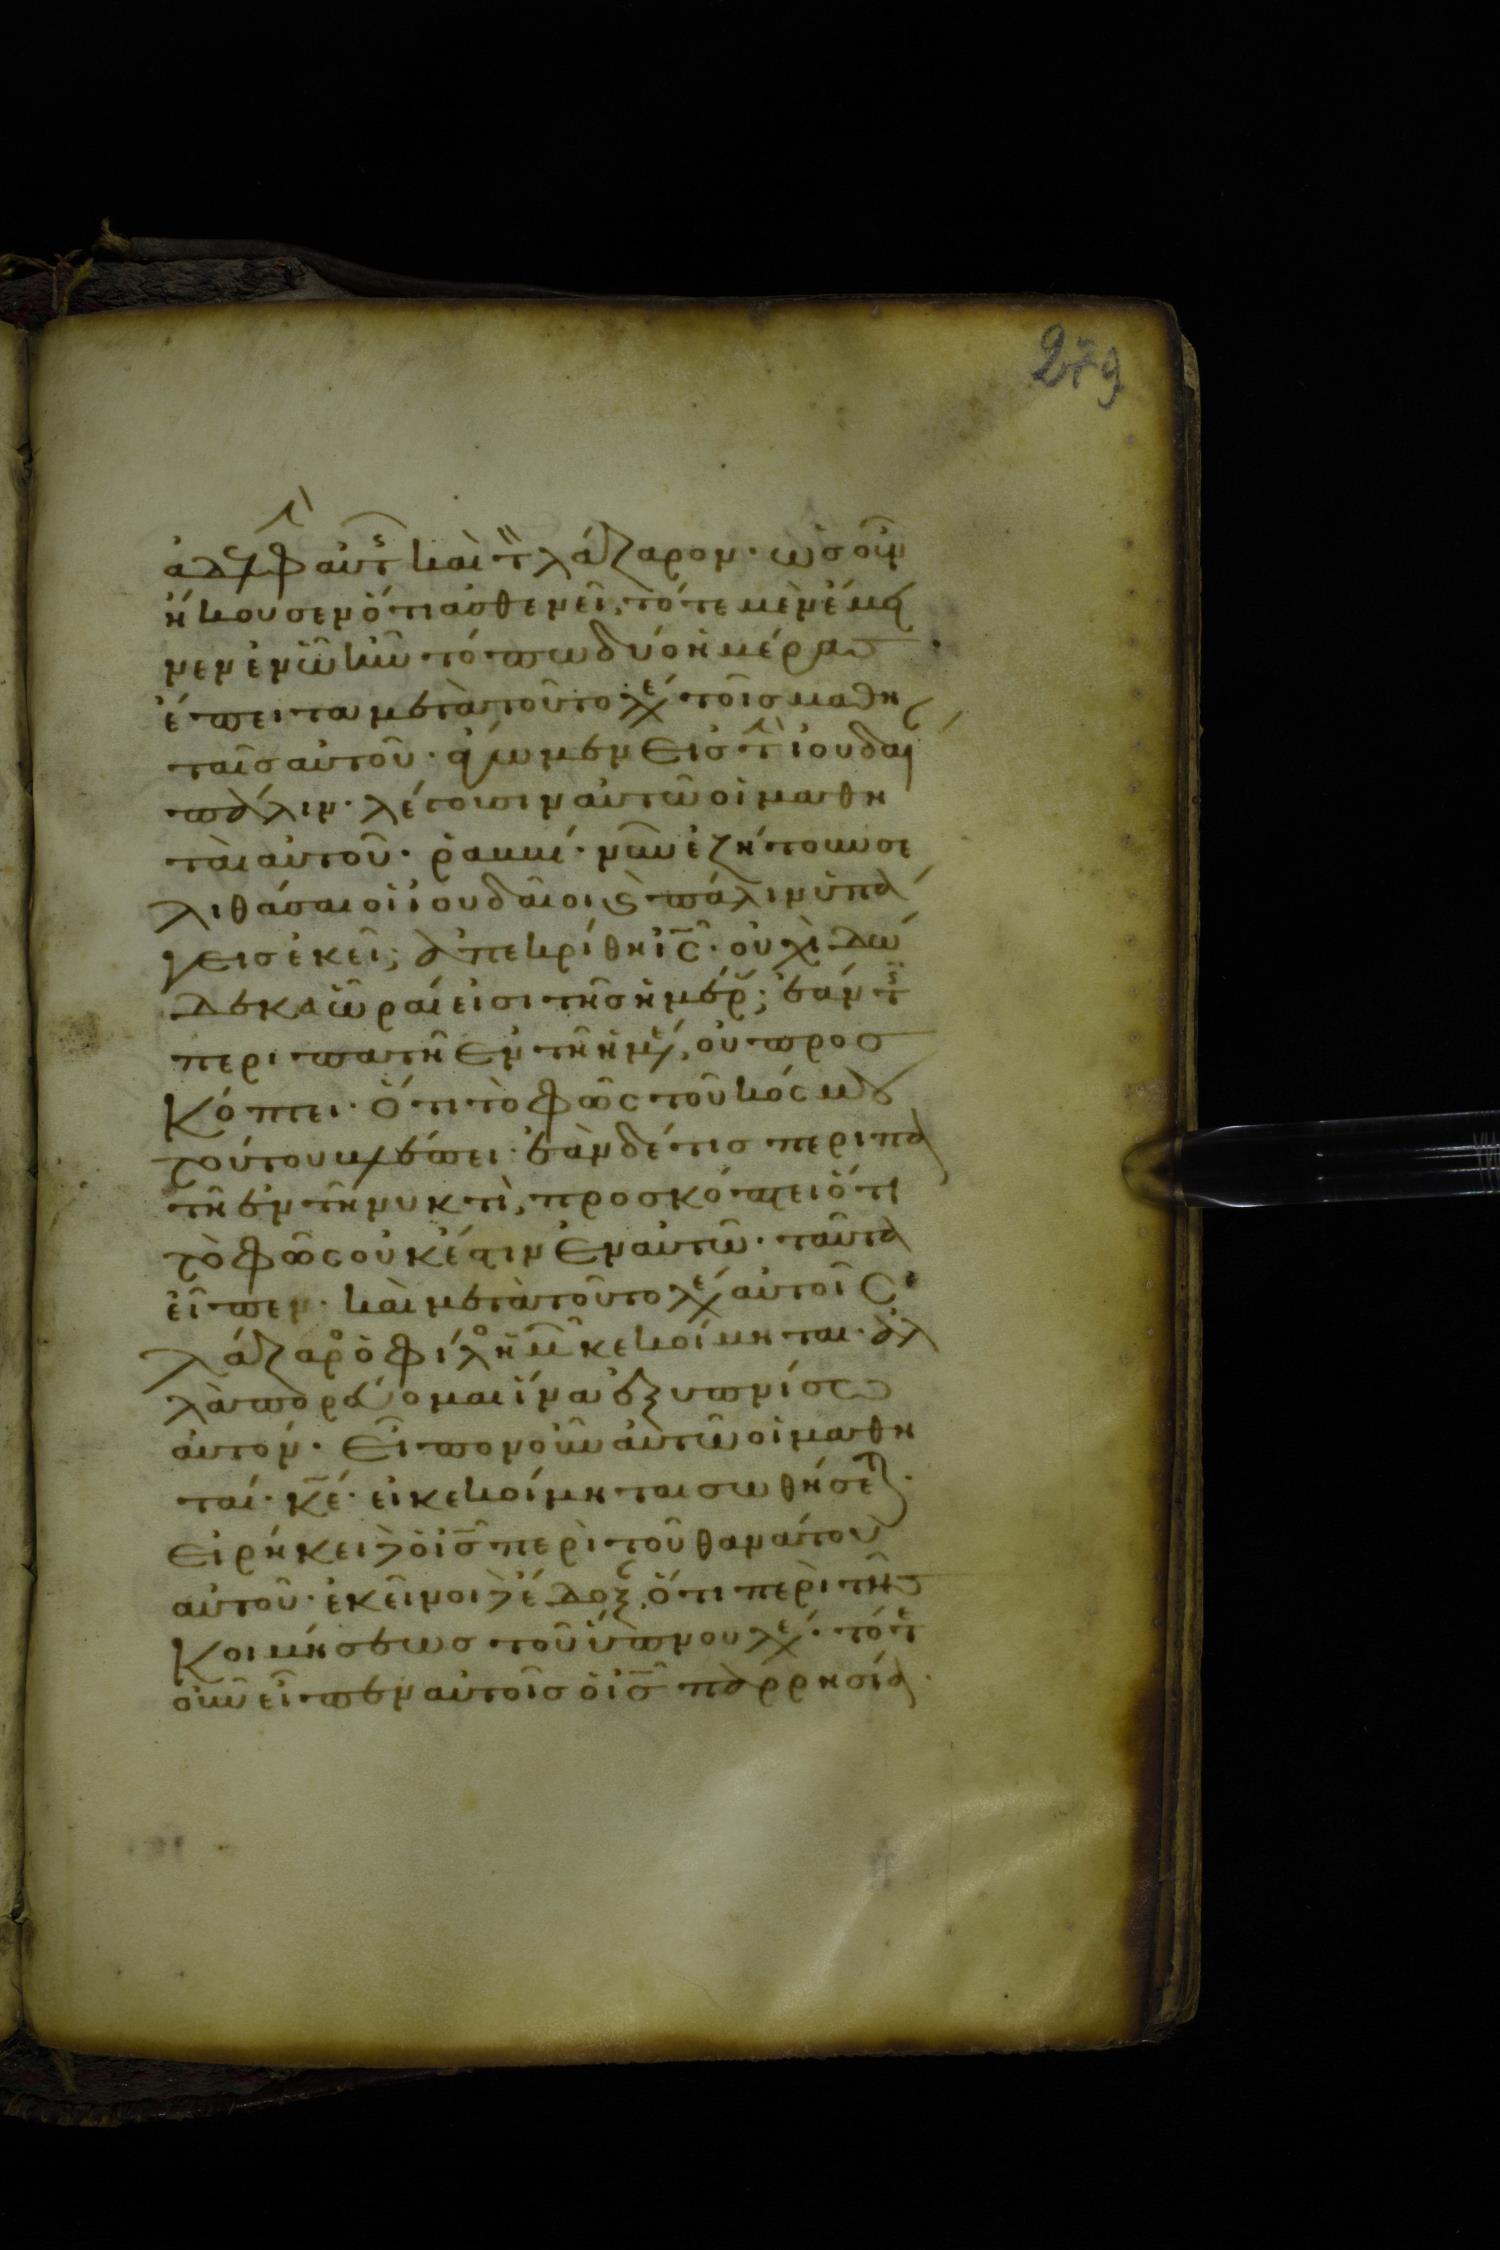 279
ἀδελφὴν αὐτῆς καὶ τὸν λάζαρον· ὡς οὖν
ἤκουσεν ὅτι ἀσθενεῖ, τότε μὲν ἔμει
νεν ἐν ᾧ ἦν τόπω δύο ἡμέρας·
ἔπειτα μετὰ τοῦτο λέγει τοῖς μαθη
ταῖς αὐτοῦ· ἄγωμεν εἰς τὴν ἰουδαί
πάλιν· λέγουσιν αὐτῶ οἱ μαθη
ταὶ αὐτοῦ· ῥαββί· νῦν ἐζήτουν σε
λιθάσαι οἱ ἰουδαῖοι καὶ πάλιν ὑπά
γεις ἐκεῖ; ἀπεκρίθη ἰς· οὐχὶ δώ
δεκα ὧραί εἰσι τῆς ἡμέρας; ἐάν τις
περιπατῆ ἐν τῆ ἡμέρα, οὐ προς
κόπτει· ὅτι τὸ φῶς τοῦ κόσμου
τούτου βλέπει· ἐὰν δέ τις περιπα
τῆ ἐν τῆ νυκτὶ, προσκόπτει ὅτι
τὸ φῶς οὐκ ἔστιν ἐν αὐτῶ· ταῦτα
εἶπεν· καὶ μετὰ τοῦτο λέγει αὐτοῖς·
λάζαρος ὁ φίλος ἡμῶν κεκοίμηται· ἀλ
λὰ πορεύομαι ἵνα ἐξυπνίσω
αὐτόν· εἶπον οὖν αὐτῶ οἱ μαθη
ταί· κε· εἰ κεκοίμηται σωθήσεται·
εἰρήκει δὲ ὁ ις περὶ τοῦ θανάτου
αὐτοῦ· ἐκεῖνοι δὲ ἔδοξαν, ὅτι περὶ τῆς
κοιμήσεως τοῦ ὕπνου λέγει· τότε
οὖν εἶπεν αὐτοῖς ὁ ις παρρησία·